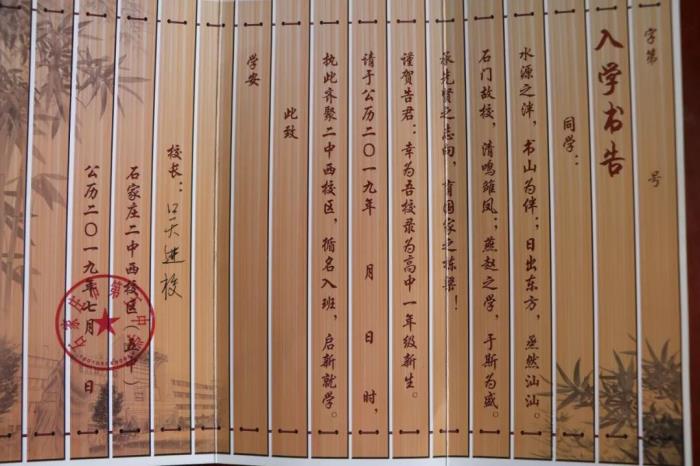 字第 号
入学书告
同学：
水源之泮，书山为伴；日出东方，烝然汕汕。
石门故校，清鸣雏凤；燕赵之学，于斯为盛。
承先贤之志向，育国家之栋梁！
谨贺告君：幸为吾校录为高中一年级新生。
请于公历二〇一九年 月 日 时，
执此齐聚二中西校区，循名入班，启新就学。
此致
学安
校长：
石家庄二中西校区（五中）
公历二〇一九年七月 日